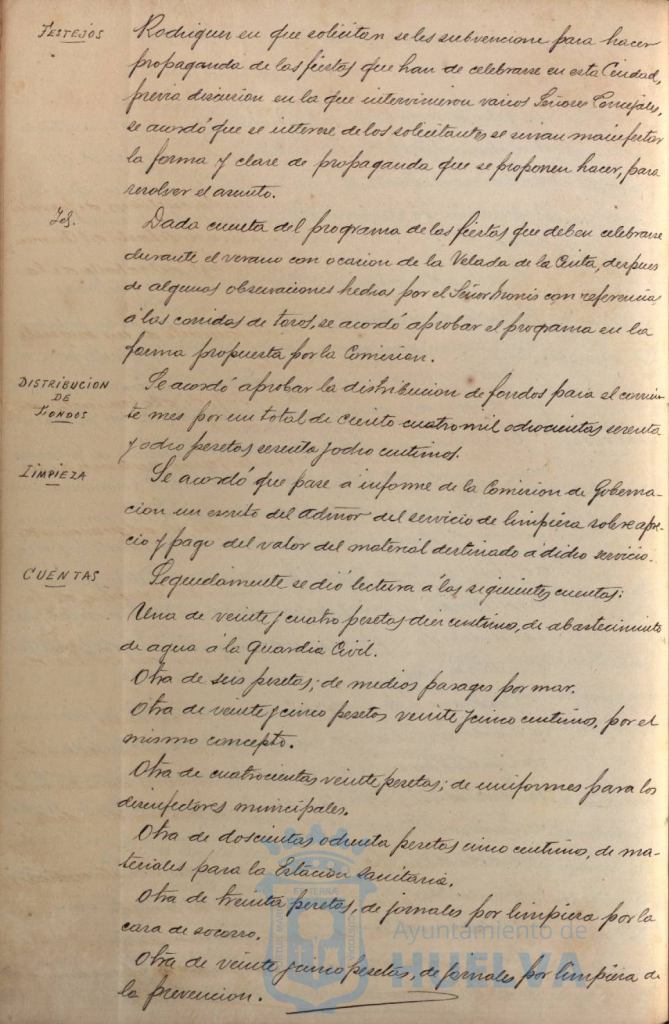 FESTEJOS
Rodriguez en que solicitan se les subvencione para hacer
propaganda de las fiestas que han de celebrarse en esta Ciudad,
previa discusion en la que intervinieron varios Señores Concejales,
se acordó que se interese de los solicitantes se sirvan manifestar
la forma y clase de propaganda que se proponen hacer, para
resolver el asunto.
Id.
Dada cuenta del programa de las fiestas que deben celebrarse
durante el verano con ocasion de la Velada de la Cinta, despues
de algunas observaciones hechas por el Señor con referencia
á las corridas de toros, se acordó aprobar el programa en la
forma propuesta por la Comision.
DISTRIBUCION
DE
FONDOS
Se acordó aprobar la distribucion de fondos para el corrien-
te mes por un total de ciento cuatro mil ochocientas sesenta
y ocho pesetas sesenta y ocho centimos.
LIMPIEZA
Se acordó que pase á informe de la Comision de Goberna-
cion un escrito del Admor del servicio de limpieza sobre apre-
cio y pago del valor del material destinado á dicho servicio.
CUENTAS
Seguidamente se dió lectura á las siguientes cuentas:
Una de veinte y cuatro pesetas diez centimos, de abastecimiento
de agua á la Guardia Civil.
Otra de seis pesetas; de medios pasages por mar.
Otra de veinte y cinco pesetas veinte y cinco centimos, por el
mismo concepto.
Otra de cuatrocientas veinte pesetas; de uniformes para los
desinfectores municipales.
Otra de doscientas ochenta pesetas cinco centimos, de ma-
teriales para la Estacion Sanitaria.
Otra de treinta pesetas, de jornales por limpieza por la
casa de socorro.
Otra de veinte y cinco pesetas, de jornales por limpieza de
la prevencion.
Ayuntamiento de
HUELVA